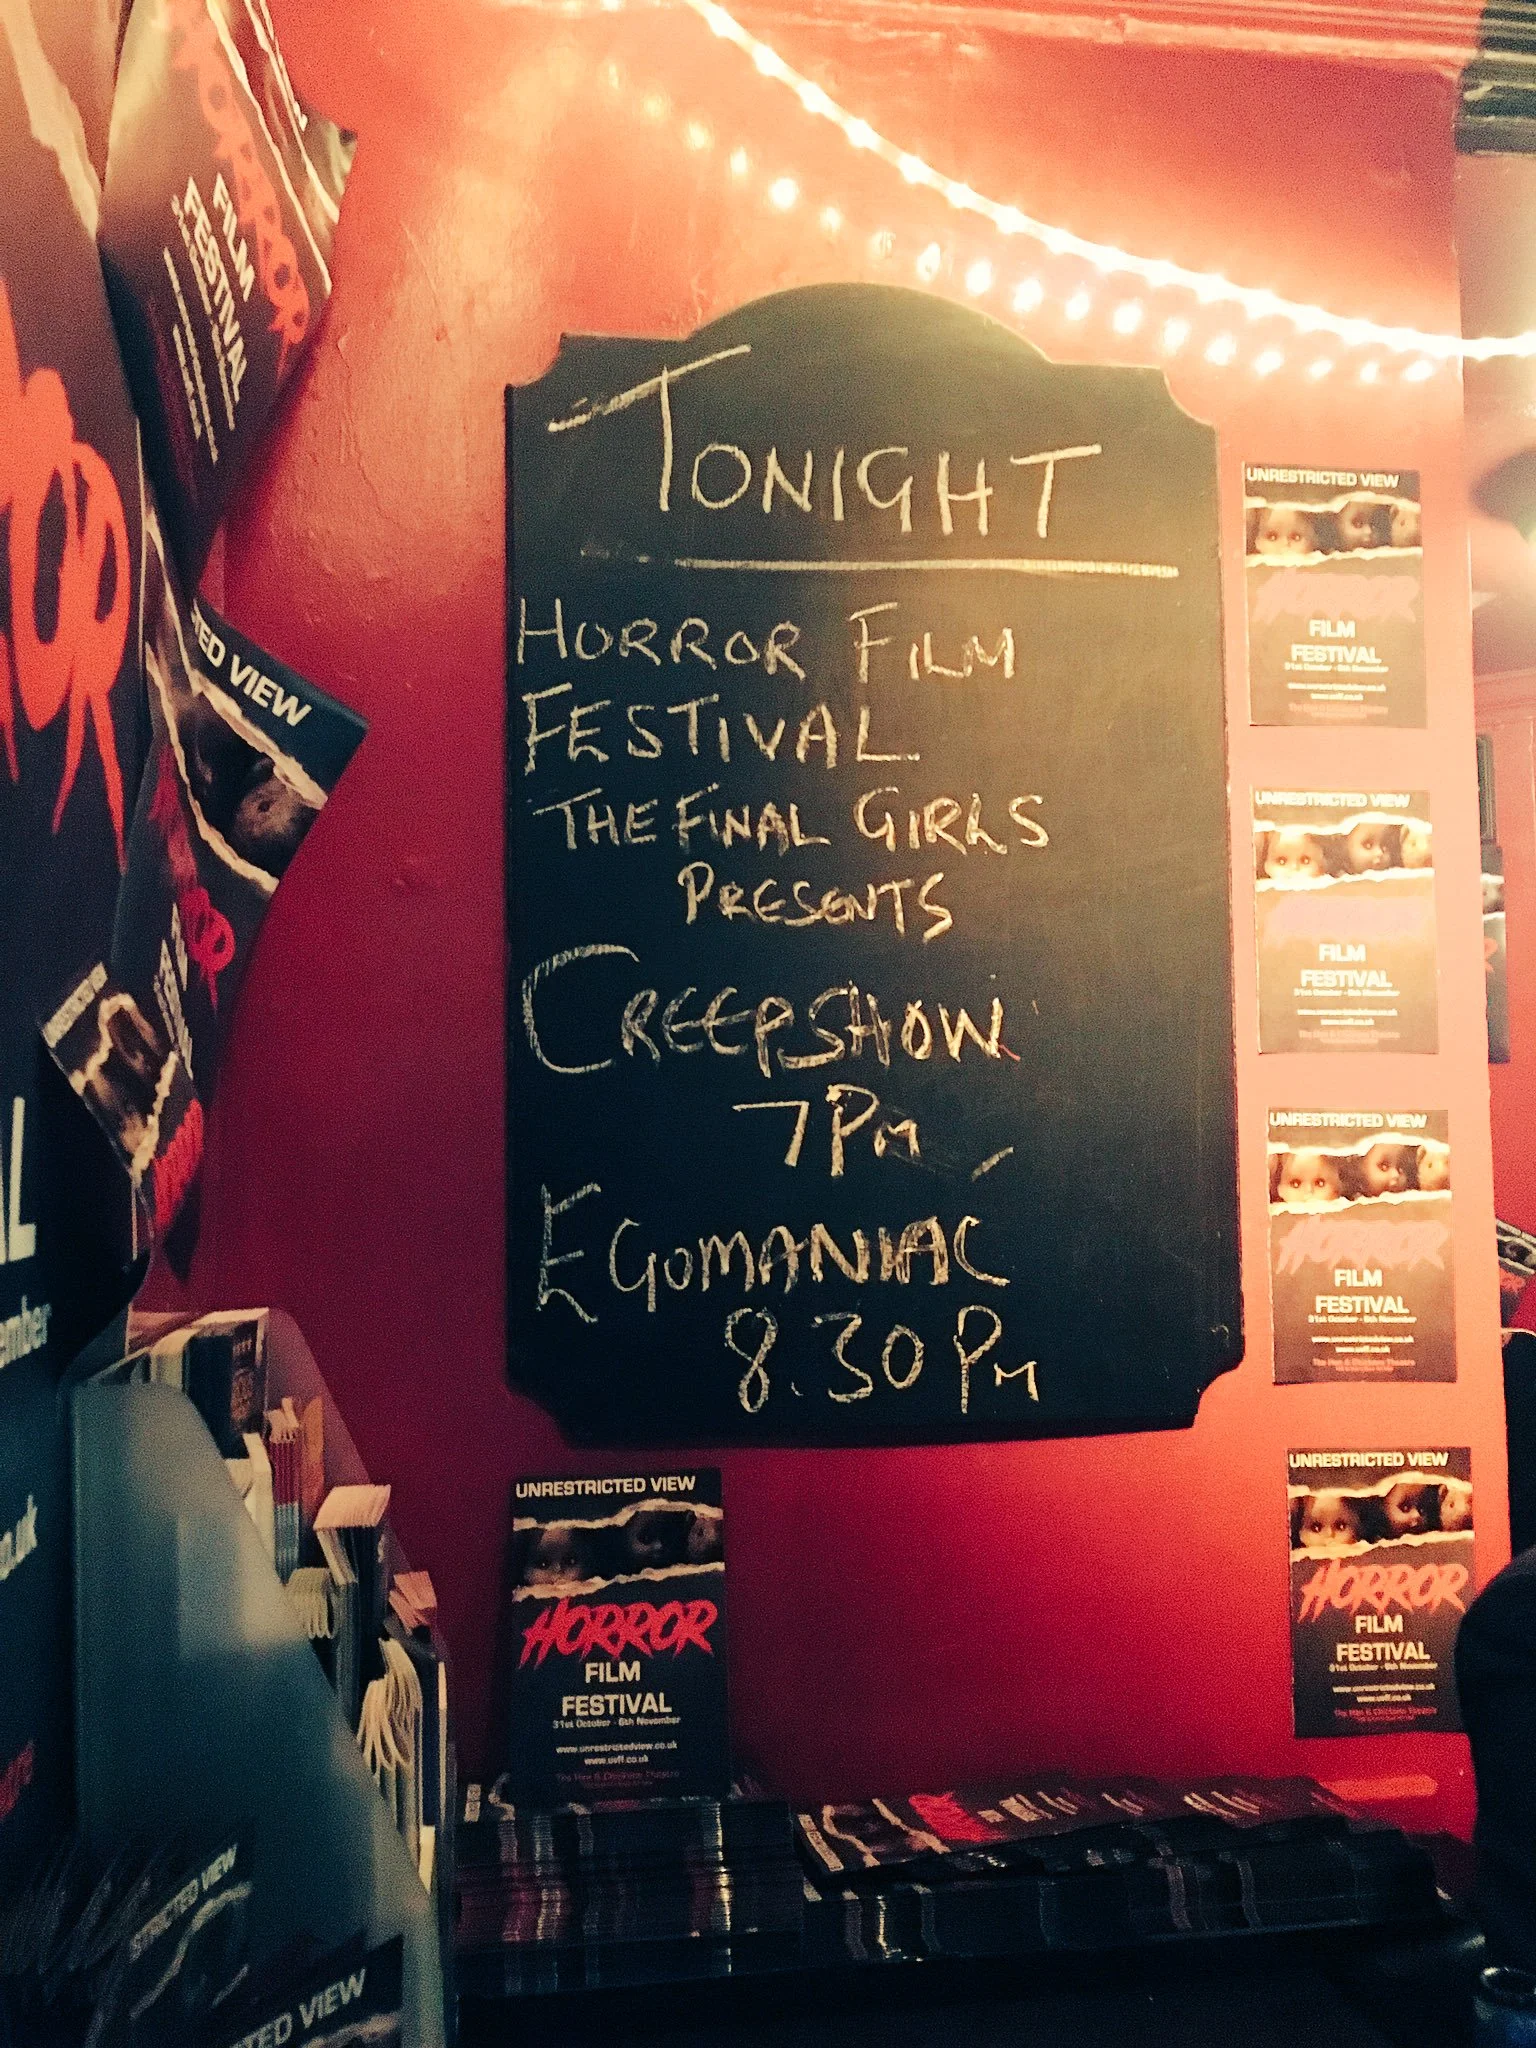 TONIGHT
HORROR FILM
FESTIVAL
THE FINAL GIRLS
PRESENTS
CREEPSHOW
7PM
EGOMANIAC
8.30PM
HORROR
FILM
FESTIVAL
OR
TED VIEW
OR
AL
ember
o.uk
UNRESTRICTED VIEW
HORROR
FILM
FESTIVAL
31st October - 6th November
www.unrestrictedview.co.uk
www.uvff.co.uk
The Hen & Chickens Theatre
UNRESTRICTED VIEW
HORROR
FILM
FESTIVAL
31st October - 6th November
www.unrestrictedview.co.uk
www.uvff.co.uk
UNRESTRICTED VIEW
FILM
FESTIVAL
31st October - 6th November
www.unrestrictedview.co.uk
www.uvff.co.uk
UNRESTRICTED VIEW
HORROR
FILM
FESTIVAL
31st October - 6th November
www.unrestrictedview.co.uk
www.uvff.co.uk
The Hen & Chickens Theatre
UNRESTRICTED VIEW
HORROR
FILM
FESTIVAL
31st October - 6th November
www.unrestrictedview.co.uk
www.uvff.co.uk
The Hen & Chickens Theatre
STRICTED VIEW
TED VIEW